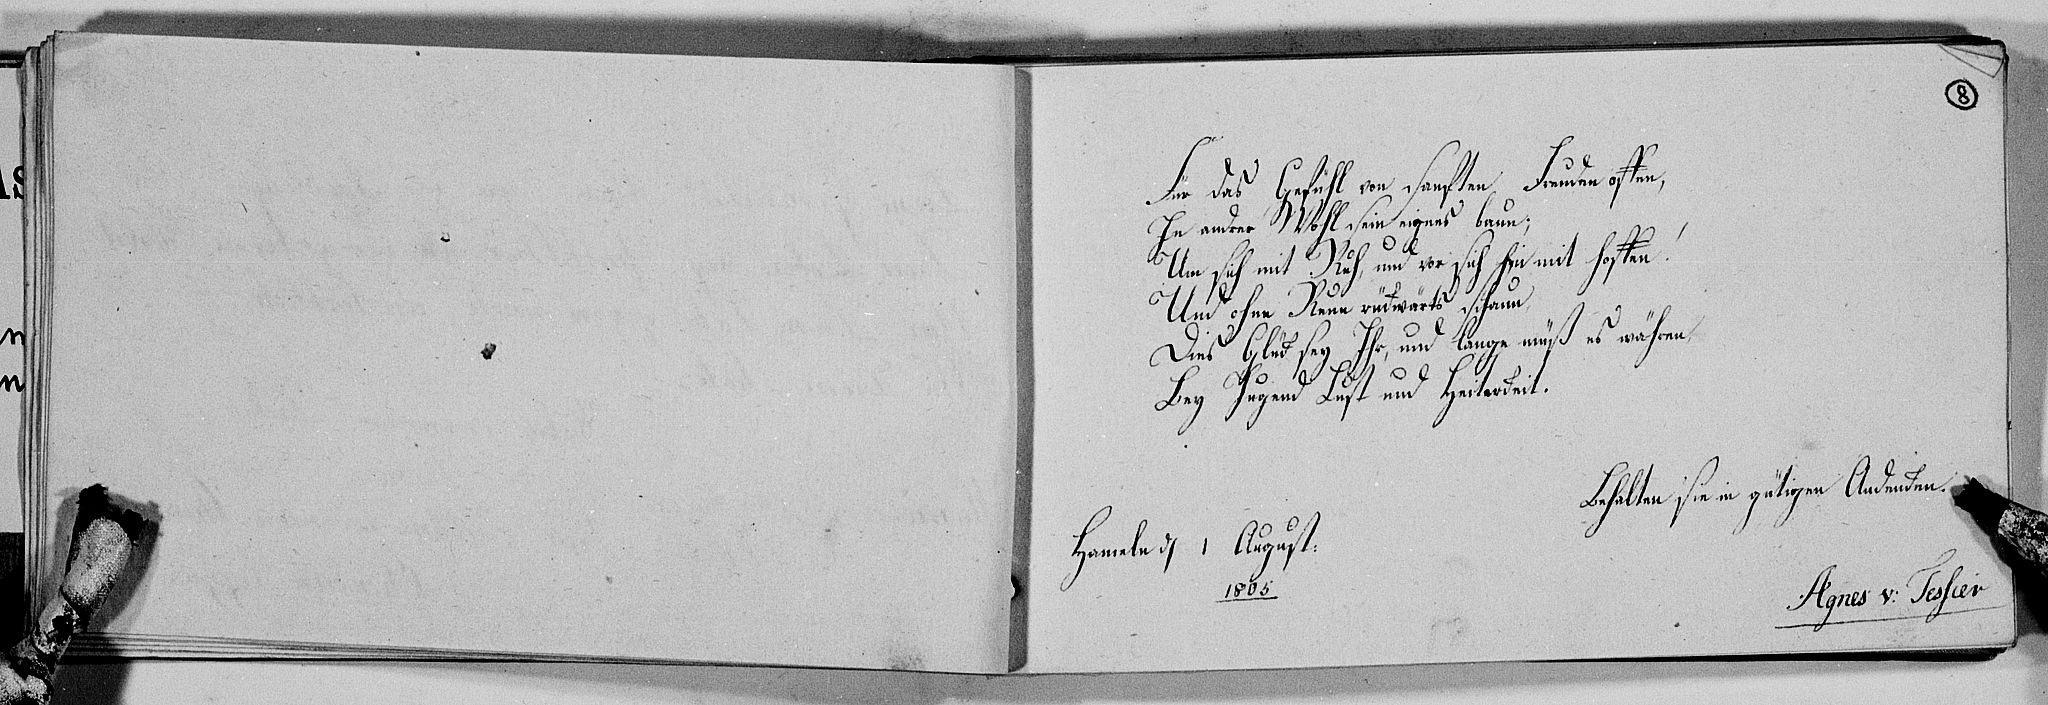 8
Für das Gefühl von sanften Freuden offen,
In andrer Wohl sein eignes baun;
Um sich mit Ruh, und vor sich hin mit hoffen!
Und ohne Reue rückwärts schaun,
Dies Glück sey Ihr, und lange müß es währen,
Bey Jugend Lust und Heiterkeit.
Behalten sie in gütigen Andenken.
Hameln d 1 August:
1805
Agnes v: Teshier